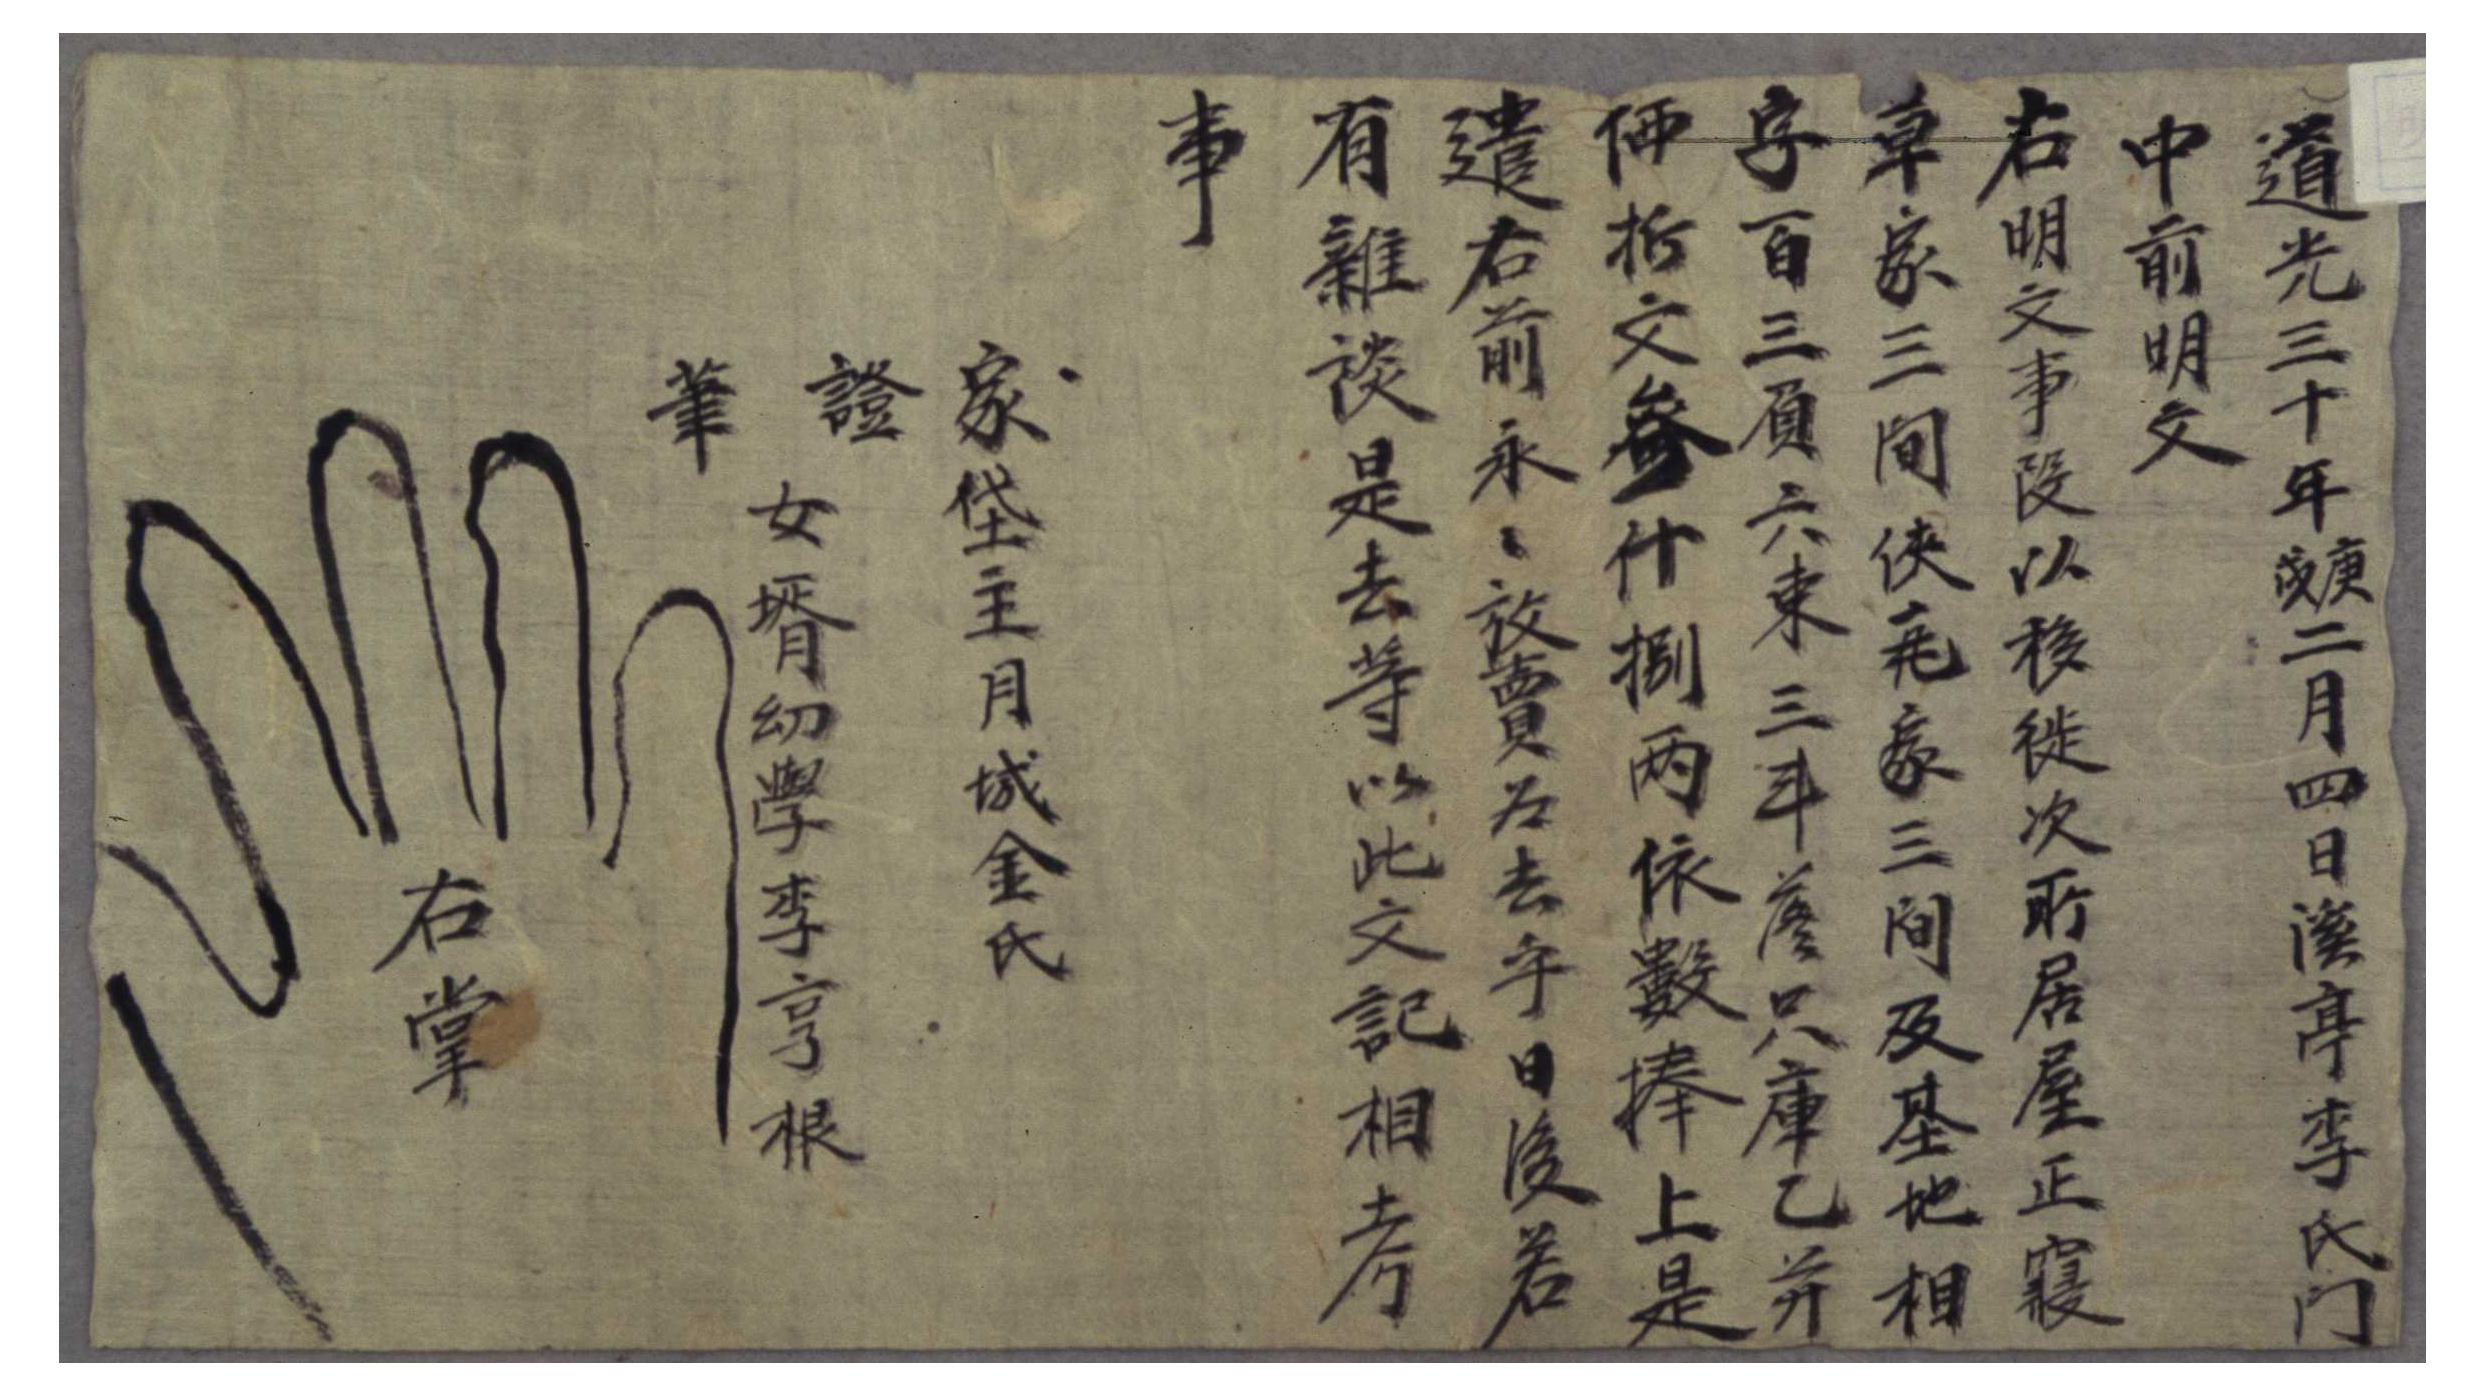 道光三十年庚戌二月四日溪亭李氏門
中前明文
右明文事段以移徙次所居屋正寢
草家三間俠乕家三間及基地相
字百三負六束三斗落只庫乙并
価折文參什捌兩依數捧上是
遣右前永〻放賣爲去乎日後若
有雜談是去等以此文記相考
事
家垈主月城金氏
證
筆
女壻幼學李亨根
右掌